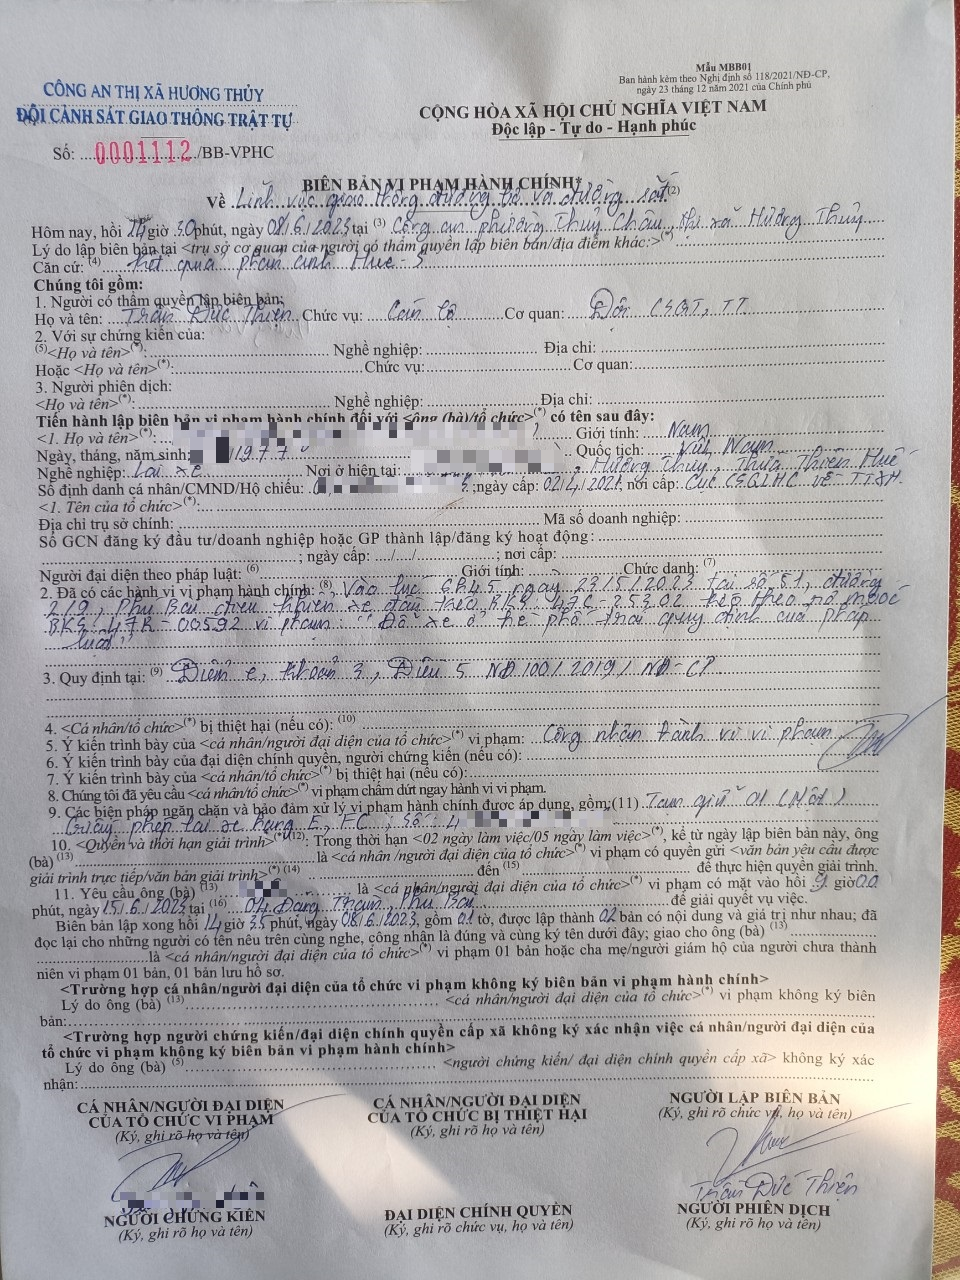 Mẫu MBB01
Ban hành kèm theo Nghị định số 118/2021/NĐ-CP,
ngày 23 tháng 12 năm 2021 của Chính phủ
CÔNG AN THỊ XÃ HƯƠNG THỦY
ĐỘI CẢNH SÁT GIAO THÔNG TRẬT TỰ
CỘNG HÒA XÃ HỘI CHỦ NGHĨA VIỆT NAM
Độc lập - Tự do - Hạnh phúc
Số: ....0001112./BB-VPHC
BIÊN BẢN VI PHẠM HÀNH CHÍNH*
Về Lĩnh vực giao thông đường bộ và đường sắt (2)
Hôm nay, hồi 14 giờ 30 phút, ngày 08/6/2023 tại (3) Công an phường Thủy Châu, thị xã Hương Thủy
Lý do lập biên bản tại <trụ sở cơ quan của người có thẩm quyền lập biên bản/địa điểm khác:>(*)
Căn cứ: (4) kết quả phản ánh Hue-S
Chúng tôi gồm:
1. Người có thẩm quyền lập biên bản:
Họ và tên: Trần Đức Thiện Chức vụ: Cán bộ Cơ quan: Đội CSGT, TT
2. Với sự chứng kiến của:
(5)<Họ và tên>(*): Nghề nghiệp: Địa chỉ:
Hoặc <Họ và tên>(*): Chức vụ: Cơ quan:
3. Người phiên dịch:
<Họ và tên>(*): Nghề nghiệp: Địa chỉ:
Tiến hành lập biên bản vi phạm hành chính đối với <ông (bà)/tổ chức>(*) có tên sau đây:
<1. Họ và tên>(*): Giới tính: Nam
Ngày, tháng, năm sinh: 1977 Quốc tịch: Việt Nam
Nghề nghiệp: Lái xe Nơi ở hiện tại: , Hương Thủy, Thừa Thiên Huế
Số định danh cá nhân/CMND/Hộ chiếu: ;ngày cấp: 02/4/2021, nơi cấp: Cục CSQLHC về TTXH.
<1. Tên của tổ chức>(*):
Địa chỉ trụ sở chính: Mã số doanh nghiệp:
Số GCN đăng ký đầu tư/doanh nghiệp hoặc GP thành lập/đăng ký hoạt động:
; ngày cấp: / / ; nơi cấp:
Người đại diện theo pháp luật: (6) Giới tính: Chức danh: (7)
2. Đã có các hành vi vi phạm hành chính: (8) Vào lúc 6h45, ngày 23/5/2023 tại số 51, đường
2/9, Phú Bài điều khiển xe đầu kéo BKS 47C-25302 kéo theo rơ moóc
BKS 47R-00592 vi phạm: "Đỗ xe ở hè phố trái quy định của pháp
luật"
3. Quy định tại: (9) Điểm e, khoản 3, Điều 5 NĐ 100/2019/NĐ-CP
4. <Cá nhân/tổ chức>(*) bị thiệt hại (nếu có): (10)
5. Ý kiến trình bày của <cá nhân/người đại diện của tổ chức>(*) vi phạm: Công nhận hành vi vi phạm
6. Ý kiến trình bày của đại diện chính quyền, người chứng kiến (nếu có):
7. Ý kiến trình bày của <cá nhân/tổ chức>(*) bị thiệt hại (nếu có):
8. Chúng tôi đã yêu cầu <cá nhân/tổ chức>(*) vi phạm chấm dứt ngay hành vi vi phạm.
9. Các biện pháp ngăn chặn và bảo đảm xử lý vi phạm hành chính được áp dụng, gồm:(11) Tạm giữ 01 (Một)
Giấy phép lái xe hạng E, FC; số: 4
10. <Quyền và thời hạn giải trình>(*)(12): Trong thời hạn <02 ngày làm việc/05 ngày làm việc>(*), kể từ ngày lập biên bản này, ông
(bà) (13) là <cá nhân /người đại diện của tổ chức>(*) vi phạm có quyền gửi <văn bản yêu cầu được
giải trình trực tiếp/văn bản giải trình>(*) (14) đến (15) để thực hiện quyền giải trình.
11. Yêu cầu ông (bà) (13) là <cá nhân/người đại diện của tổ chức>(*) vi phạm có mặt vào hồi 9 giờ 00
phút, ngày 15/6/2023 tại (16) 04 Đặng Tràm, Phú Bài để giải quyết vụ việc.
Biên bản lập xong hồi 14 giờ 35 phút, ngày 08/6/2023, gồm 01 tờ, được lập thành 02 bản có nội dung và giá trị như nhau; đã
đọc lại cho những người có tên nêu trên cùng nghe, công nhận là đúng và cùng ký tên dưới đây; giao cho ông (bà) (13)
là <cá nhân/người đại diện của tổ chức>(*) vi phạm 01 bản hoặc cha mẹ/người giám hộ của người chưa thành
niên vi phạm 01 bản, 01 bản lưu hồ sơ.
<Trường hợp cá nhân/người đại diện của tổ chức vi phạm không ký biên bản vi phạm hành chính>
Lý do ông (bà) (13) <cá nhân/người đại diện của tổ chức>(*) vi phạm không ký biên
bản:
<Trường hợp người chứng kiến/đại diện chính quyền cấp xã không ký xác nhận việc cá nhân/người đại diện của
tổ chức vi phạm không ký biên bản vi phạm hành chính>
Lý do ông (bà) (5) <người chứng kiến/ đại diện chính quyền cấp xã> không ký xác
nhận:
CÁ NHÂN/NGƯỜI ĐẠI DIỆN
CỦA TỔ CHỨC VI PHẠM
(Ký, ghi rõ họ và tên)
CÁ NHÂN/NGƯỜI ĐẠI DIỆN
CỦA TỔ CHỨC BỊ THIỆT HẠI
(Ký, ghi rõ họ và tên)
NGƯỜI LẬP BIÊN BẢN
(Ký, ghi rõ chức vụ, họ và tên)
Trần Đức Thiện
NGƯỜI CHỨNG KIẾN
(Ký, ghi rõ họ và tên)
ĐẠI DIỆN CHÍNH QUYỀN
(Ký, ghi rõ chức vụ, họ và tên)
NGƯỜI PHIÊN DỊCH
(Ký, ghi rõ họ và tên)